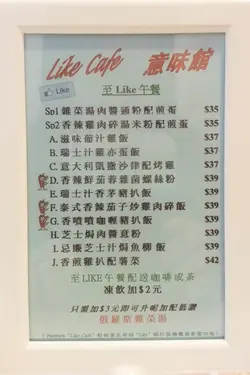 Like Cafe 意味館
Like
至Like午餐
Sp1 雜菜湯肉醬通粉配煎蛋 $35
Sp2 香辣雞肉碎湯米粉配煎蛋 $37
A. 滋味茄汁雞飯 $39
B. 瑞士汁雞亦蛋飯 $39
C. 意大利凱撒沙律配烤雞 $37
D. 香辣鮮茄蓉雜菌螺絲粉 $39
E. 瑞士汁香茅豬扒飯 $39
F. 泰式香辣茄子炒雞肉碎飯 $39
G. 香噴噴咖喱豬扒飯 $39
H. 芝士焗肉醬意粉 $39
I. 忌廉芝士汁焗魚柳飯 $39
J. 香煎雞扒配薯菜 $42
至LIKE午餐配送咖啡或茶
凍飲加$2元
只需加$3元即可升呢加配低溫
俄羅斯雜菜湯